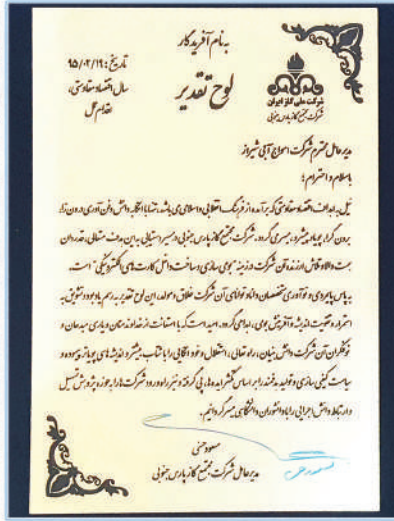 به نام آفریدگار
تاریخ: ۹۵/۰۲/۱۹
سال اقتصاد مقاومتی،
اقدام و عمل
لوح تقدیر
شرکت ملی گاز ایران
شرکت مجتمع گاز پارس جنوبی
مدیرعامل محترم شرکت امواج آبی شیراز
با سلام و احترام؛
نیل به اهداف اقتصاد مقاومتی که برآمده از فرهنگ انقلابی و اسلامی می باشد، تنها با اتکا به دانش و فن آوری درون زا،
برون گرا، پویا و پیشرو، میسر می گردد. شرکت مجتمع گاز پارس جنوبی در مسیر دستیابی به این هدف متعالی، قدردان
همت والا و تلاش ارزنده آن شرکت در زمینه "بومی سازی و ساخت داخل کارت های الکترونیکی" است.
به پاس پایمردی و نوآوری متخصصان و نماد توانای آن شرکت خلاق و مولد، این لوح تقدیر به رسم یادبود و تشویق به
استمرار و تقویت اندیشه و آفرینش بومی، اهدا می گردد. امید است که با استعانت از خداوند منان و یاری مدیران و
نوآوران آن شرکت دانش بنیان، راه تعالی، استقلال و خوداتکایی را با شتاب بیشتر و اندیشه های پویاتر پیموده و
سیاست کیفی سازی و تولید هدفمند را بر اساس گفته ایده ها، پی گرفته و نیز راه ورود شرکت ها را به حوزه پژوهش تسهیل
و ارتباط دانش اجرایی را با دانشوران دانشگاهی میسر گردانیم.
مسعود حسنی
مدیرعامل شرکت مجتمع گاز پارس جنوبی